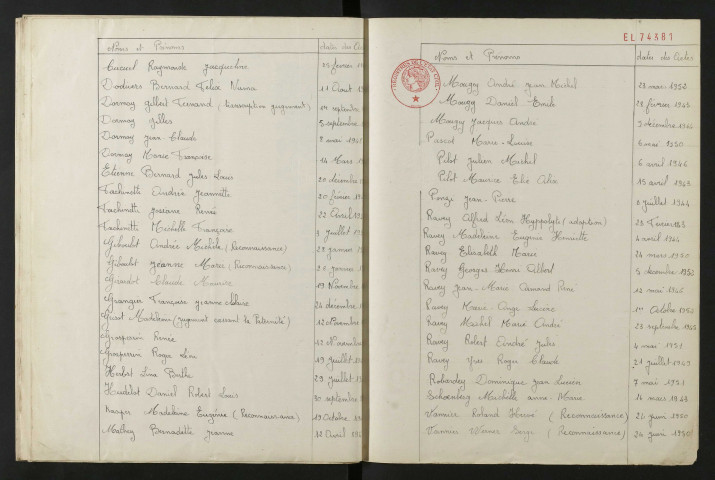 Noms et Prénoms date des Ac
Cucuel Raymonde Jacqueline 25 février 19
Dodivers Bernard Félix 11 Août 19
Dormoy Gilbert Fernand (transcription jugement) septembre
Dormoy Gilles 5 septembre
Dormoy Jean Claude 2 mai 19
Dormoy Marie Françoise 14 Mars 19
Etienne Bernard Jules Louis 20 décembre
Fachinetti Andrée Jeannette 20 février 19
Fachinetti Josiane Renée 22 Avril 19
Fachinetti Michelle Françoise 8 juillet
Giboulot Andrée Michèle (Reconnaissance) 28 janvier
Giboulot Jeanne Marie (Reconnaissance) 28 janvier
Girardot Claude Maurice 19 Novembre
Grangier Françoise Jeanne 24 décembre
Guiot Madeleine (jugement cessant la Paternité) 12 Novembre
Grosperrin Renée 12 Novembre
Grosperrin Roger Léon 19 juillet
Herbet Line Berthe 29 juillet
Hudelot Daniel Robert Louis 30 septembre
Kaefer Madeleine Eugénie (Reconnaissance) 19 Octobre
Malbey Bernadette Jeanne 12 Avril
EL74381
Noms et Prénoms dates des Actes
Mougey André Jean Michel 28 mai 1952
Mougey Daniel Emile 28 février 1945
Mougey Jacques André 3 décembre 1946
Pascal Marie-Louise 6 mai 1950
Pilot Julien Michel 6 avril 1946
Pilot Maurice Elie 15 avril 1943
Ponzi Jean-Pierre 2 juillet 1944
Ravey Alfred Léon Hyppolyte (adoption) 28 février
Ravey Madeleine Eugénie Henriette 4 avril 1944
Ravey Elizabeth Marie 24 mars 1950
Ravey Georges Henri Albert 5 décembre 1952
Ravey Jean-Marie Armand René 12 mai 1946
Ravey Marie Ange Lucie 1er Octobre
Ravey Michel Marie André 23 septembre 1943
Ravey Robert André Jules 4 mai 1951
Ravey Yves Roger Claude 21 juillet 1949
Robardey Dominique Jean Lucien 7 mai 1951
Schoenberg Michelle Anne-Marie 14 mars 1948
Vannier Roland Hervé (Reconnaissance) 24 juin 1950
Vannier Werner Serge (Reconnaissance) 24 juin 1950